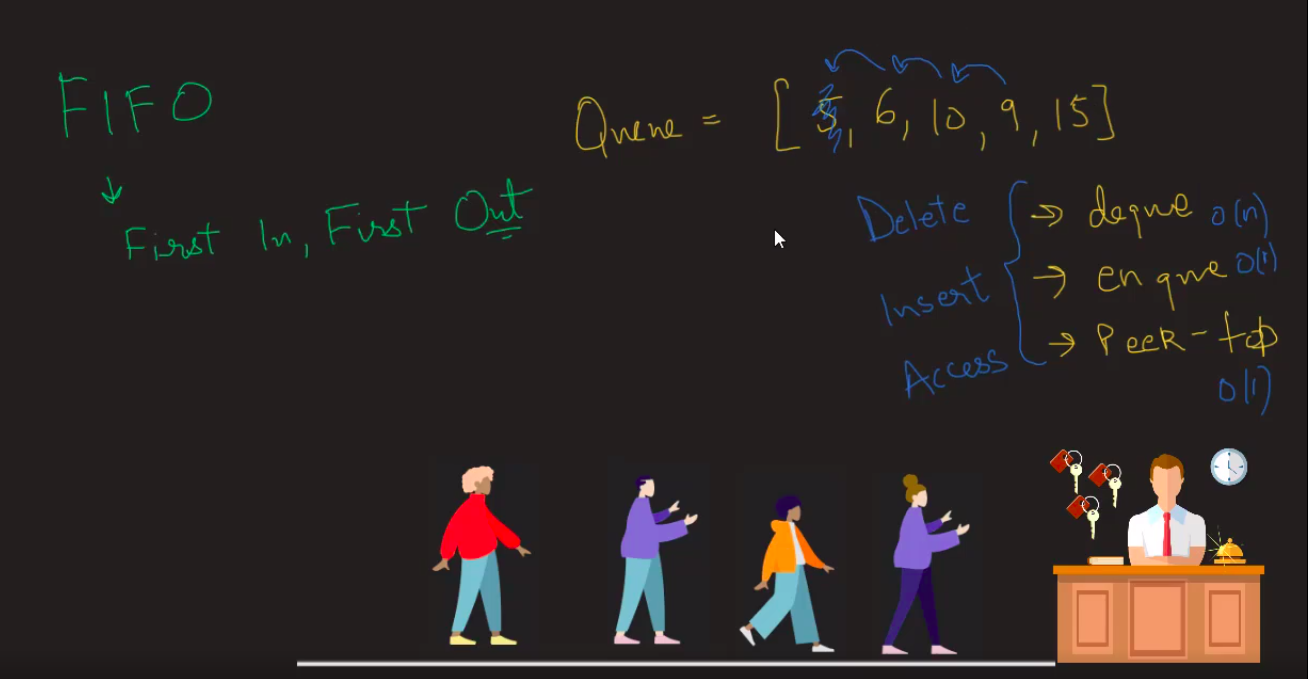 FIFO
↓
First In, First Out
Queue = [ 5, 6, 10, 9, 15]
Delete → deque O(n)
Insert → enque O(1)
Access → Peek - top
O(1)